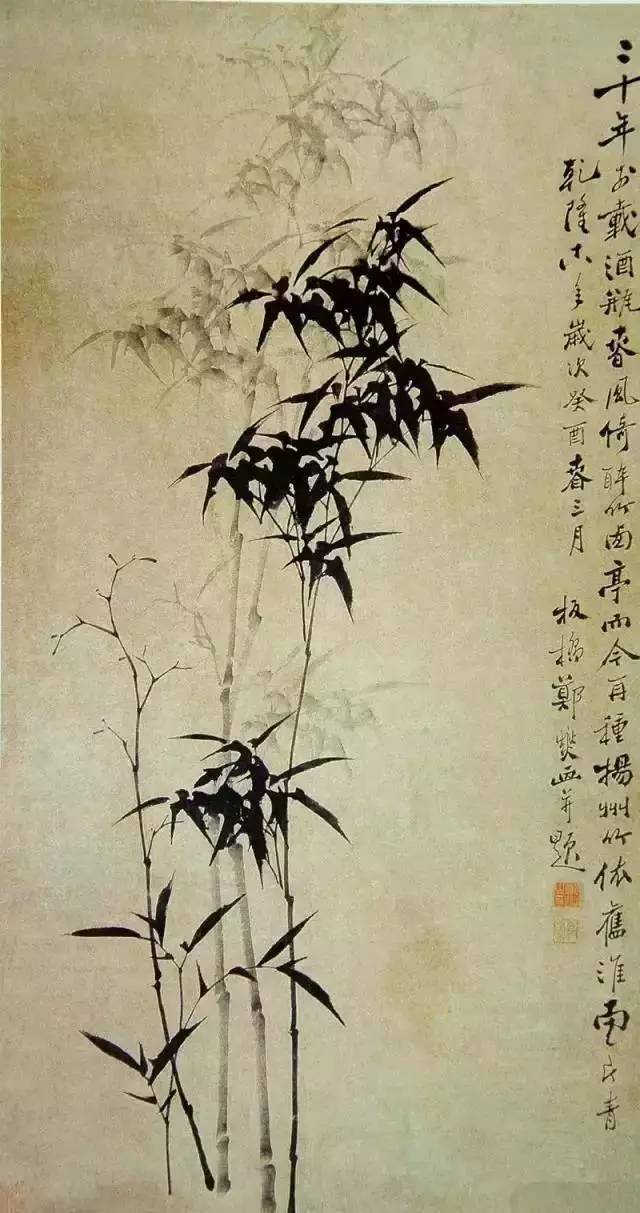 三十年前載酒瓶春風倚醉竹西亭而今再種揚州竹依舊淮南一片青
乾隆十八年歲次癸酉春三月
板橋鄭燮画并題